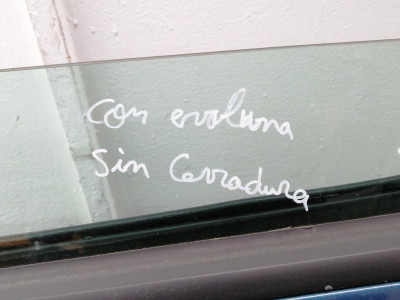 con evoluna
Sin Cerradura